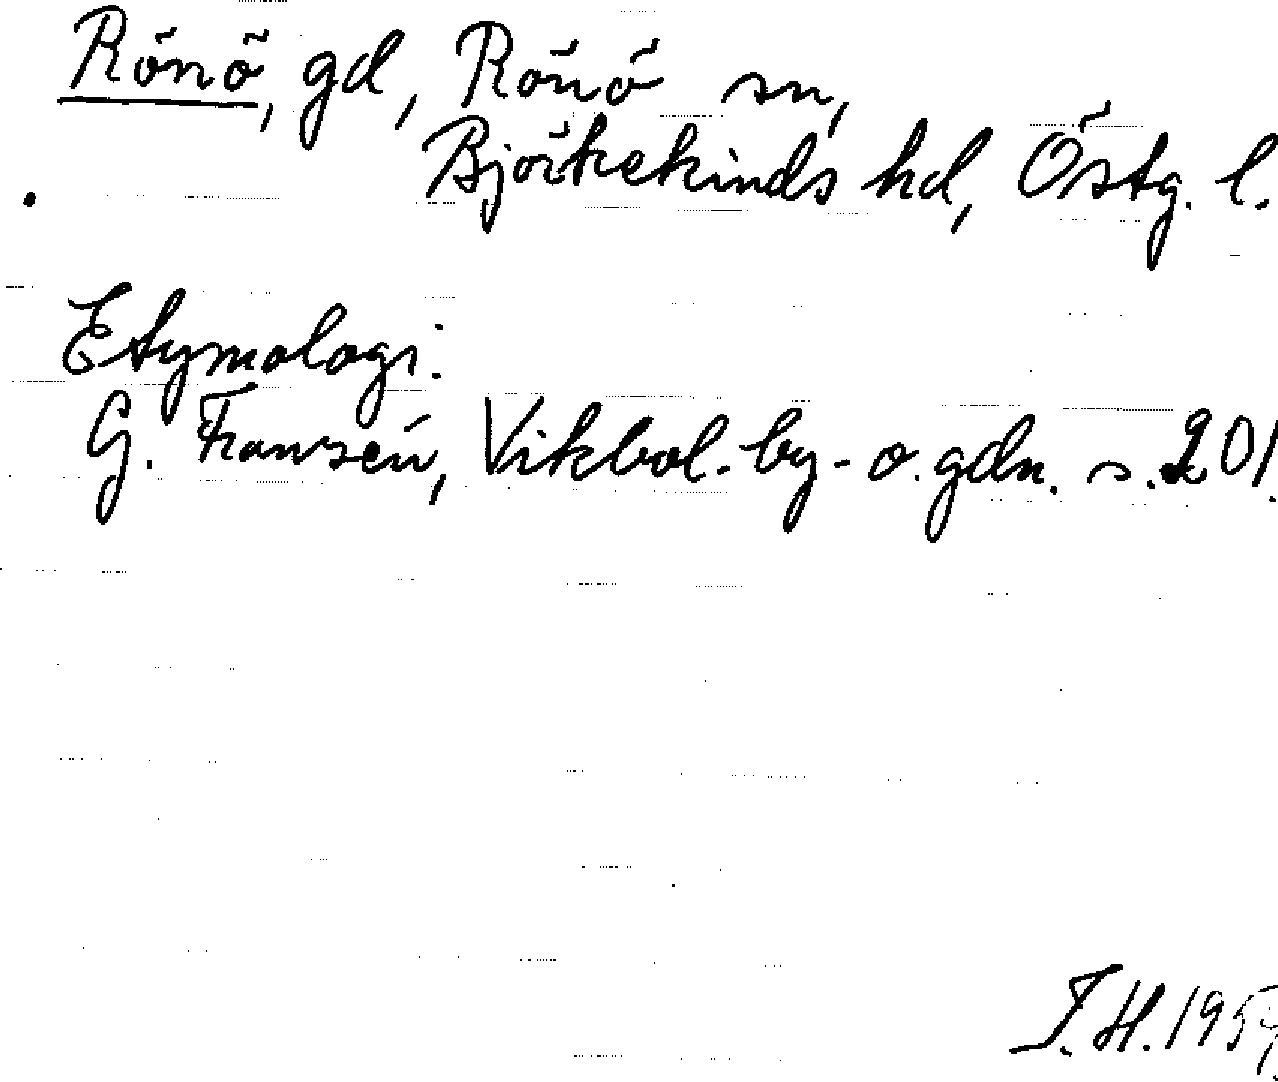 Rönö, gd, Rönö sn,
Björkekinds hd, Östg. l.
Etymologi:
G. Franzén, Vikbol. by- o. gdn. s. 201.
I.H.